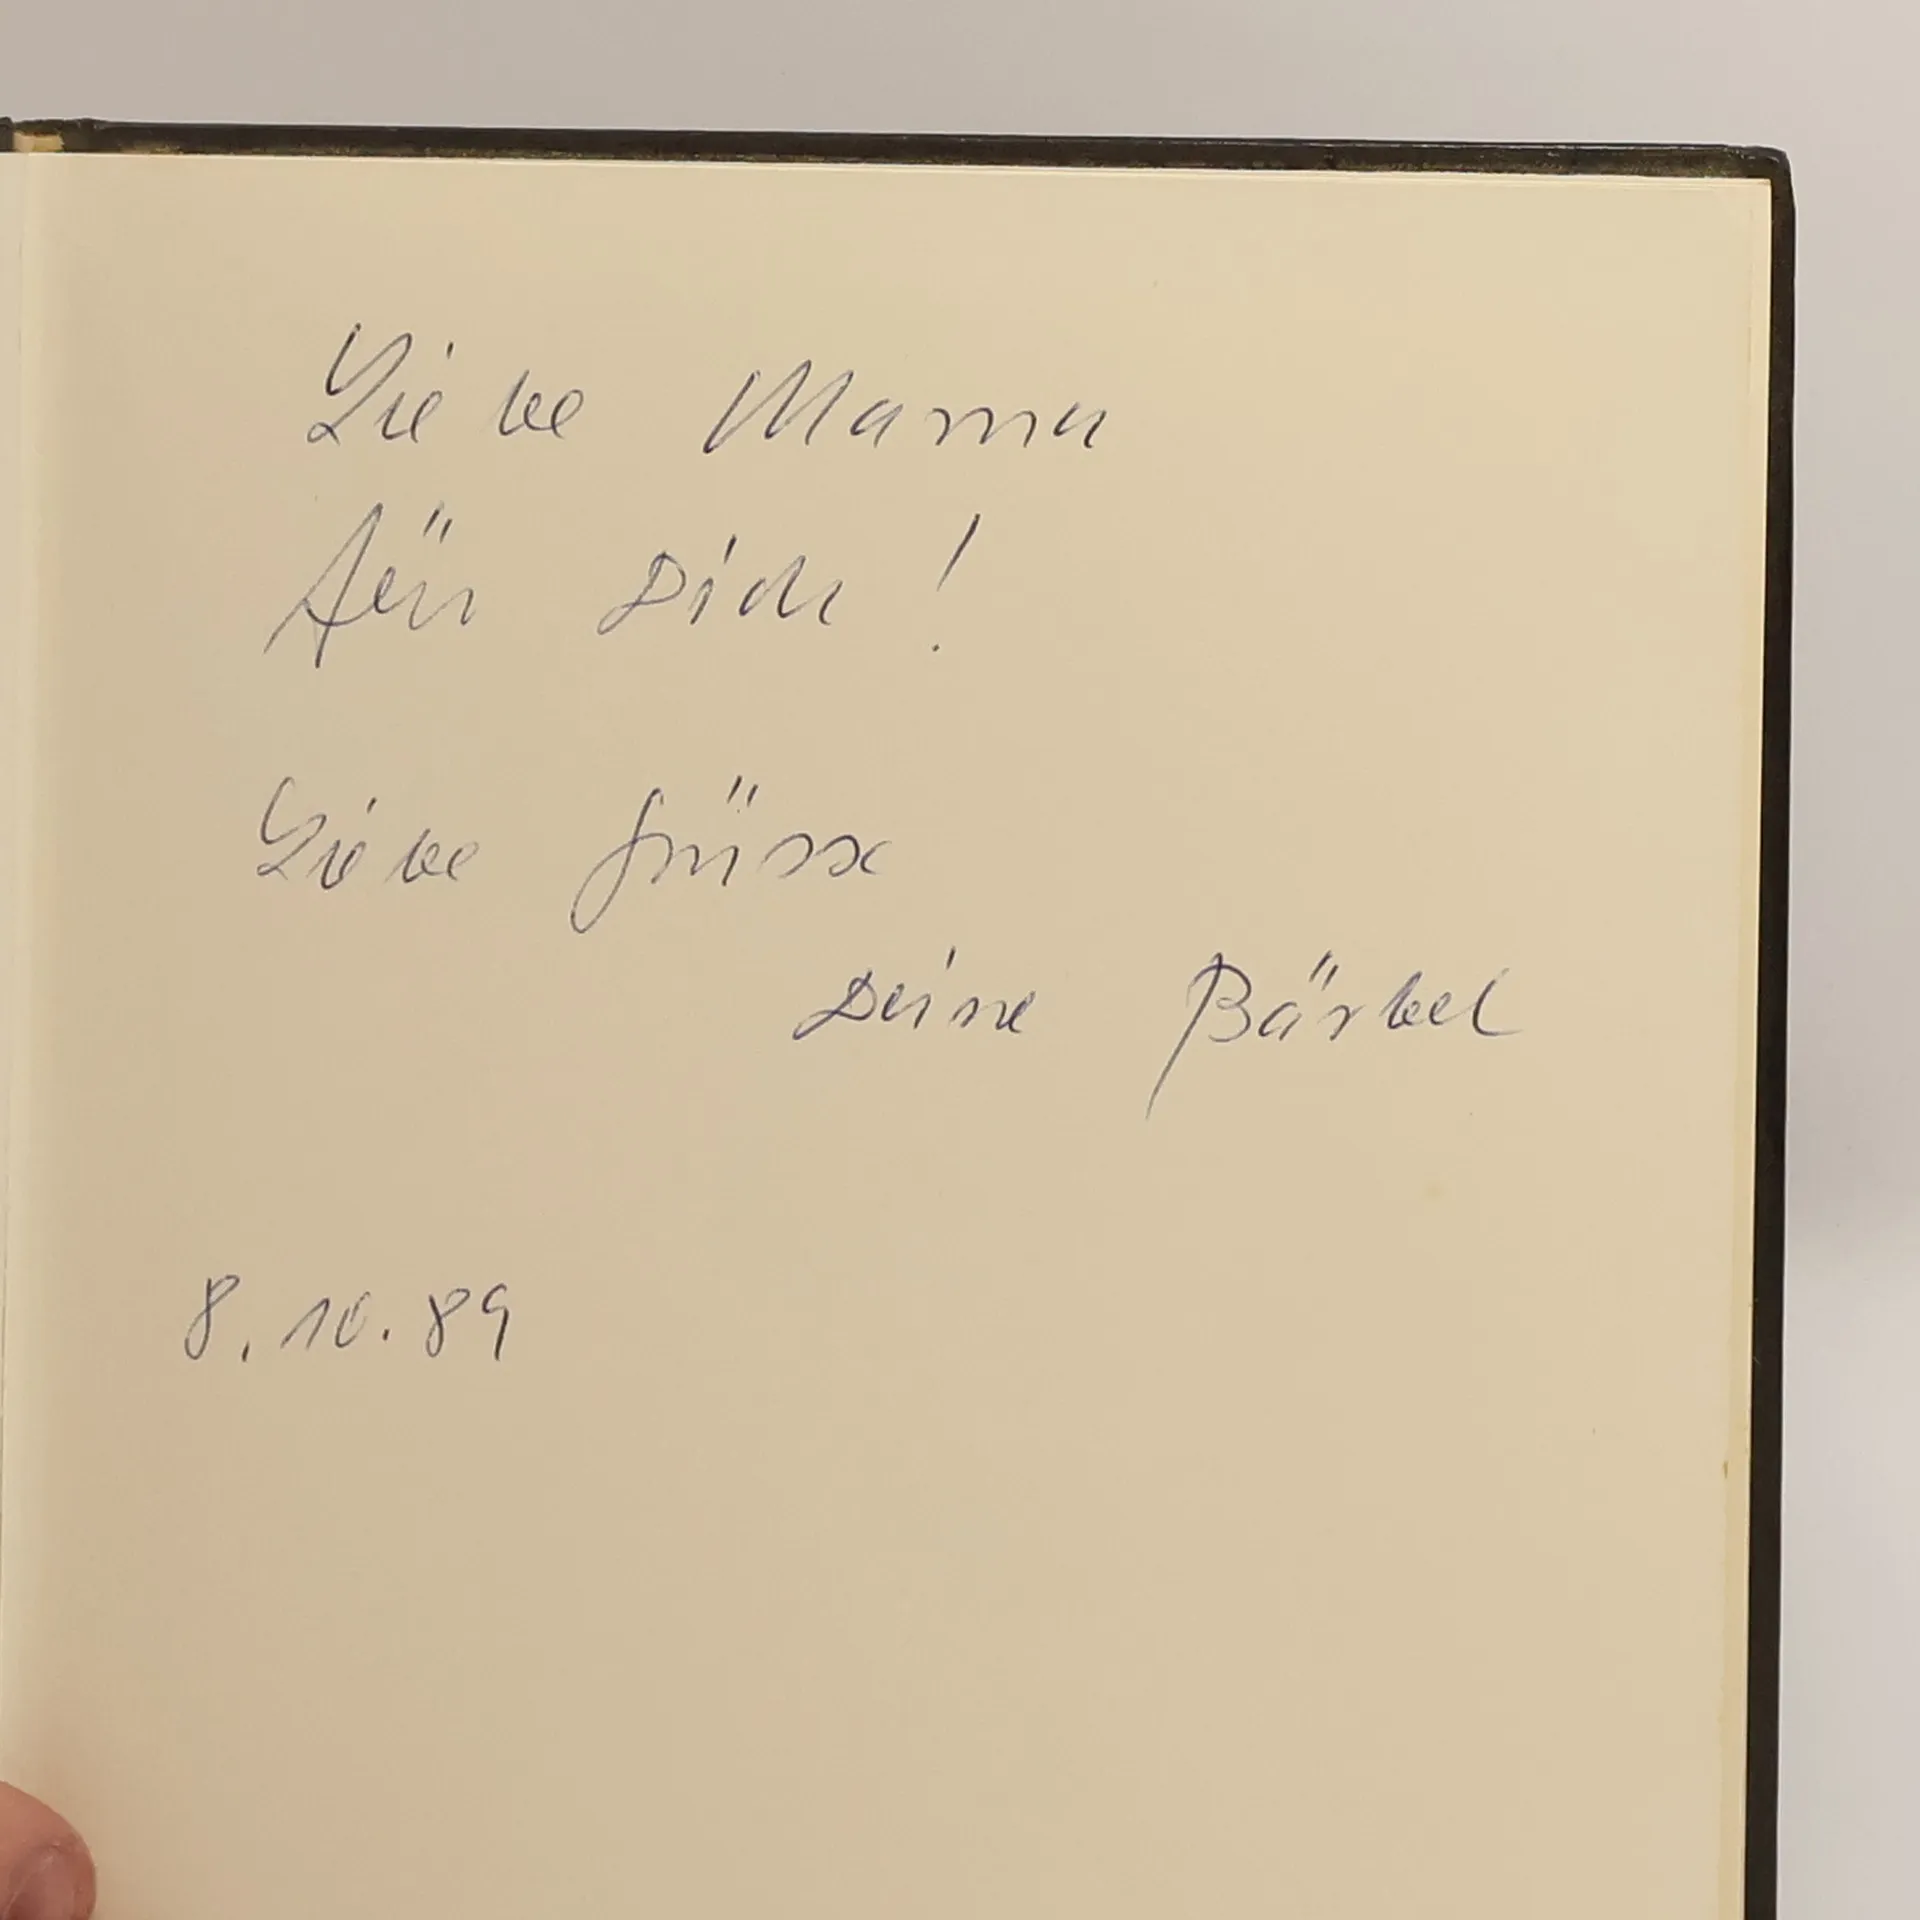 Liebe Mama
für Dich !
Liebe Grüsse
Deine Bärbel
8.10.89